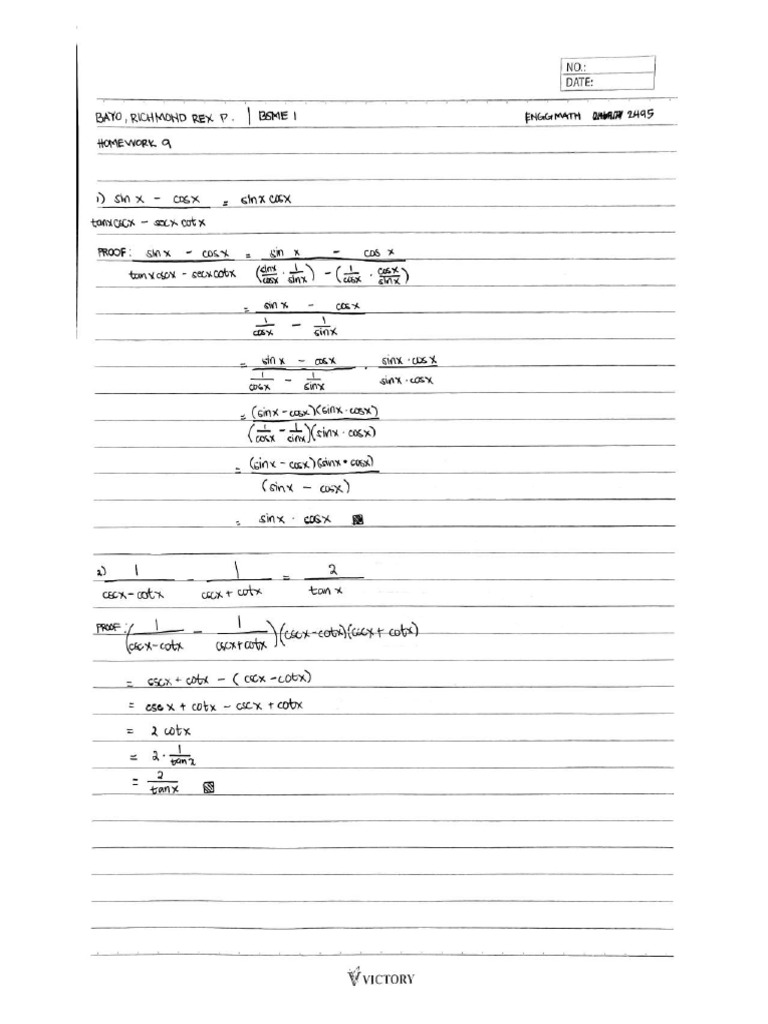 NO.:
DATE:
BAYO, RICHMOND REX P. | BSME 1 ENGGMATH 2495
HOMEWORK 9
1) sin x - cosx / tanxcscx - secx cotx = sinx cosx
PROOF: sinx - cosx / tanxcscx - secxcotx = sin x - cos x / (sinx/cosx · 1/sinx) - (1/cosx · cosx/sinx)
= sinx - cosx / 1/cosx - 1/sinx
= sinx - cosx / 1/cosx - 1/sinx · sinx·cosx / sinx·cosx
= (sinx - cosx)(sinx·cosx) / (1/cosx - 1/sinx)(sinx·cosx)
= (sinx - cosx)(sinx·cosx) / (sinx - cosx)
= sinx · cosx
2) 1 / cscx - cotx - 1 / cscx + cotx = 2 / tan x
PROOF: (1 / cscx - cotx - 1 / cscx + cotx)(cscx - cotx)(cscx + cotx)
= cscx + cotx - (cscx - cotx)
= cscx + cotx - cscx + cotx
= 2 cotx
= 2 · 1 / tan2
= 2 / tanx
VICTORY